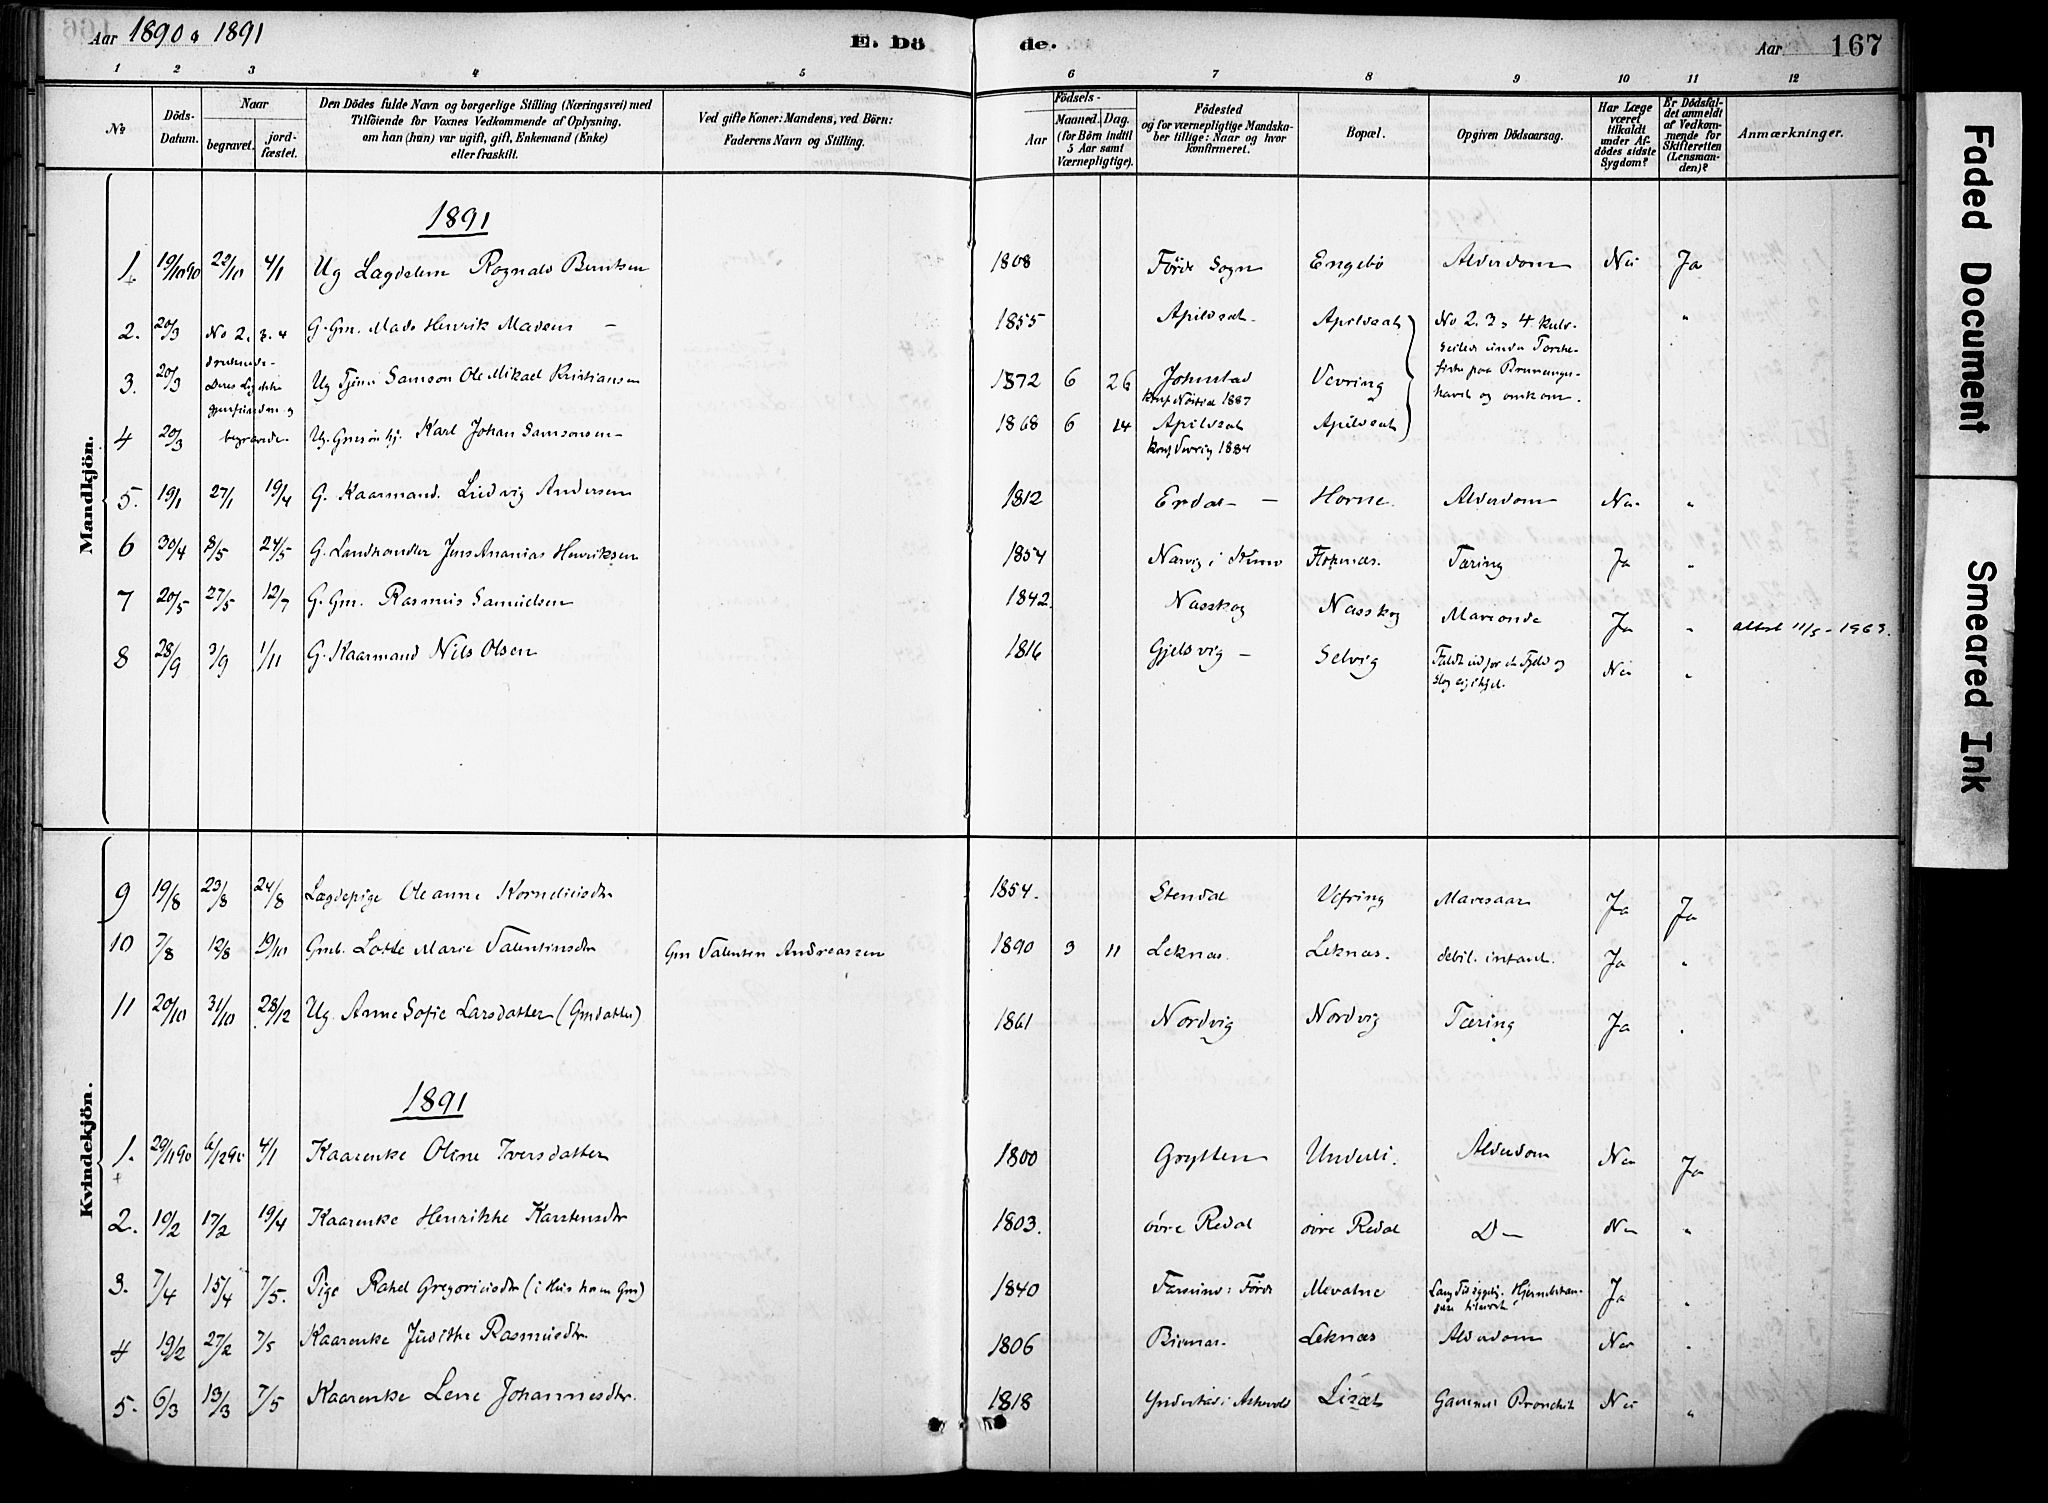 Aar 1890 & 1891
E. Döde.
Aar
167
1 2 3 4 5 6 7 8 9 10 11 12
№
Döds-Datum.
Naar
begravet.
jord-fæstet.
Den Dödes fulde Navn og borgerlige Stilling (Næringsvei) med
Tilföiende for Voxnes Vedkommende af Oplysning,
om han (hun) var ugift, gift, Enkemand (Enke)
eller fraskilt.
Ved gifte Koner: Mandens, ved Börn:
Faderens Navn og Stilling.
Födsels-
Aar
Maaned. Dag.
(for Börn indtil
5 Aar samt
Værnepligtige).
Födested
og for værnepligtige Mandska-
ber tillige: Naar og hvor
konfirmeret.
Bopæl.
Opgiven Dödsaarsag.
Har Læge
været
tilkaldt
under Af-
dödes sidste
Sygdom?
Er Dödsfal-
det anmeldt
af Vedkom-
mende for
Skifteretten
(Lensman-
den)?
Anmærkninger.
Mandkjön.
1891
1. 19/10 90 22/10 4/1 Ug Lægdslem Rognald Berntsen 1808 Förde Sogn Engebö Alderdom Nei Ja
2. 20/3 G. Gm. Mads Henrik Madsen 1855 Apilsæt Apilsæt "
No 2. 3. 4
druknede.
Deres Lig ikke
gjenfundne og
begravede.
No 2. 3 & 4 kuld-
seilede under Torske-
fiske paa
havet og omkom.
3. 20/3 Ug Tjener Samson Ole Mikael Kristiansen 1872 6 26 Johnstad Vevring
konf 1887
4 20/3 Ug. Karl Johan Samsonsen 1868 6 14 Apilsæt Apilsæt
konf Vevring 1884
5. 19/1 27/1 19/4 G. Kaarmand. Ludvig Andersen 1812 Erdal Horne. Alderdom Nei "
6 30/4 8/5 24/5 G. Landhandler Jens Ananias Henriksen 1854 Flokenæs. Tæring Ja "
7 20/5 27/5 12/7 G. Gm. Rasmus Samuelsen 1842. Nasskog Nasskog Maveonde Ja " 11/5 - 1963.
8 28/9 3/9 1/11 G. Kaarmand Nils Olsen 1816 Gjelsvig Selvig Faldt ud for et Fjeld og
slog sig ihjel. Nei "
Kvindekjön.
9 19/8 23/8 24/8 Lægdepige Oleanne Korneliusdtr 1854. Stendal Vefring Mavesaar Ja Ja
10 7/8 12/8 19/10 Gmb. Lotte Marie Valentinsdtr Gm Valentin Andreassen 1890 3 11 Leknæs. Leknæs. debil. infant. Ja "
11 20/10 31/10 28/12 Ug. Anne Sofie Larsdatter (Gmdatter) 1861 Nordvig Nordvig Tæring Ja "
1891
1. 29/11 90 6/12 90 4/1 Kaarenke Oline Iversdatter 1800 Grytten Underli. Alderdom Nei Ja
2. 10/2 17/2 19/4 Kaarenke Henrikke Karstensdtr 1803. övre Redal övre Redal D— Nei "
3. 7/4 15/4 7/5. Pige Rakel Gregoriusdtr (i Hus hos en Gm) 1840 Farsund i Förde Mevatne Ja "
4 19/2 27/2 7/5 Kaarenke Judithe Rasmusdtr 1806 Leknæs Alderdom Nei "
5. 6/3 13/3 7/5 Kaarenke Lene Johannesdtr. 1818 Yndestad i Askvold Lisæt Gammel Bronchit Nei "
Faded Document
Smeared Ink